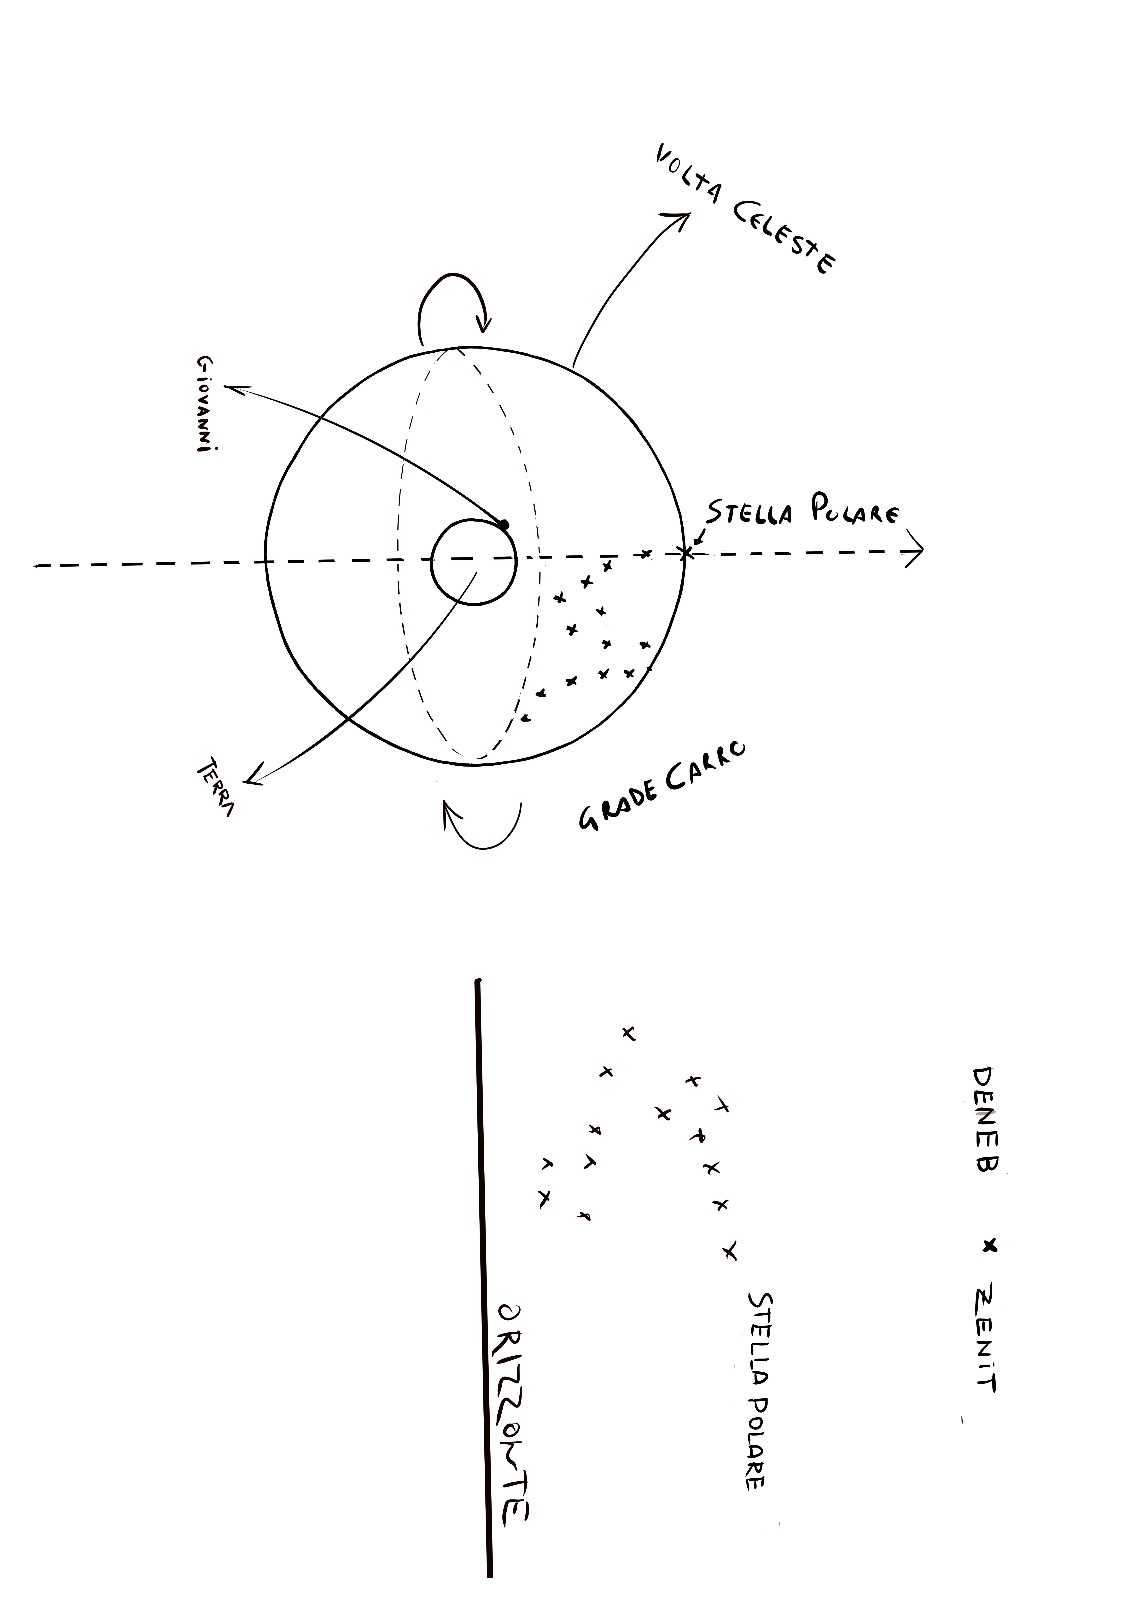 VOLTA CELESTE
GiOVANNi
STELLA POLARE
TERRA
GRADE CARRO
DENEB
ZENiT
STELLA POLARE
ORIZZONTE